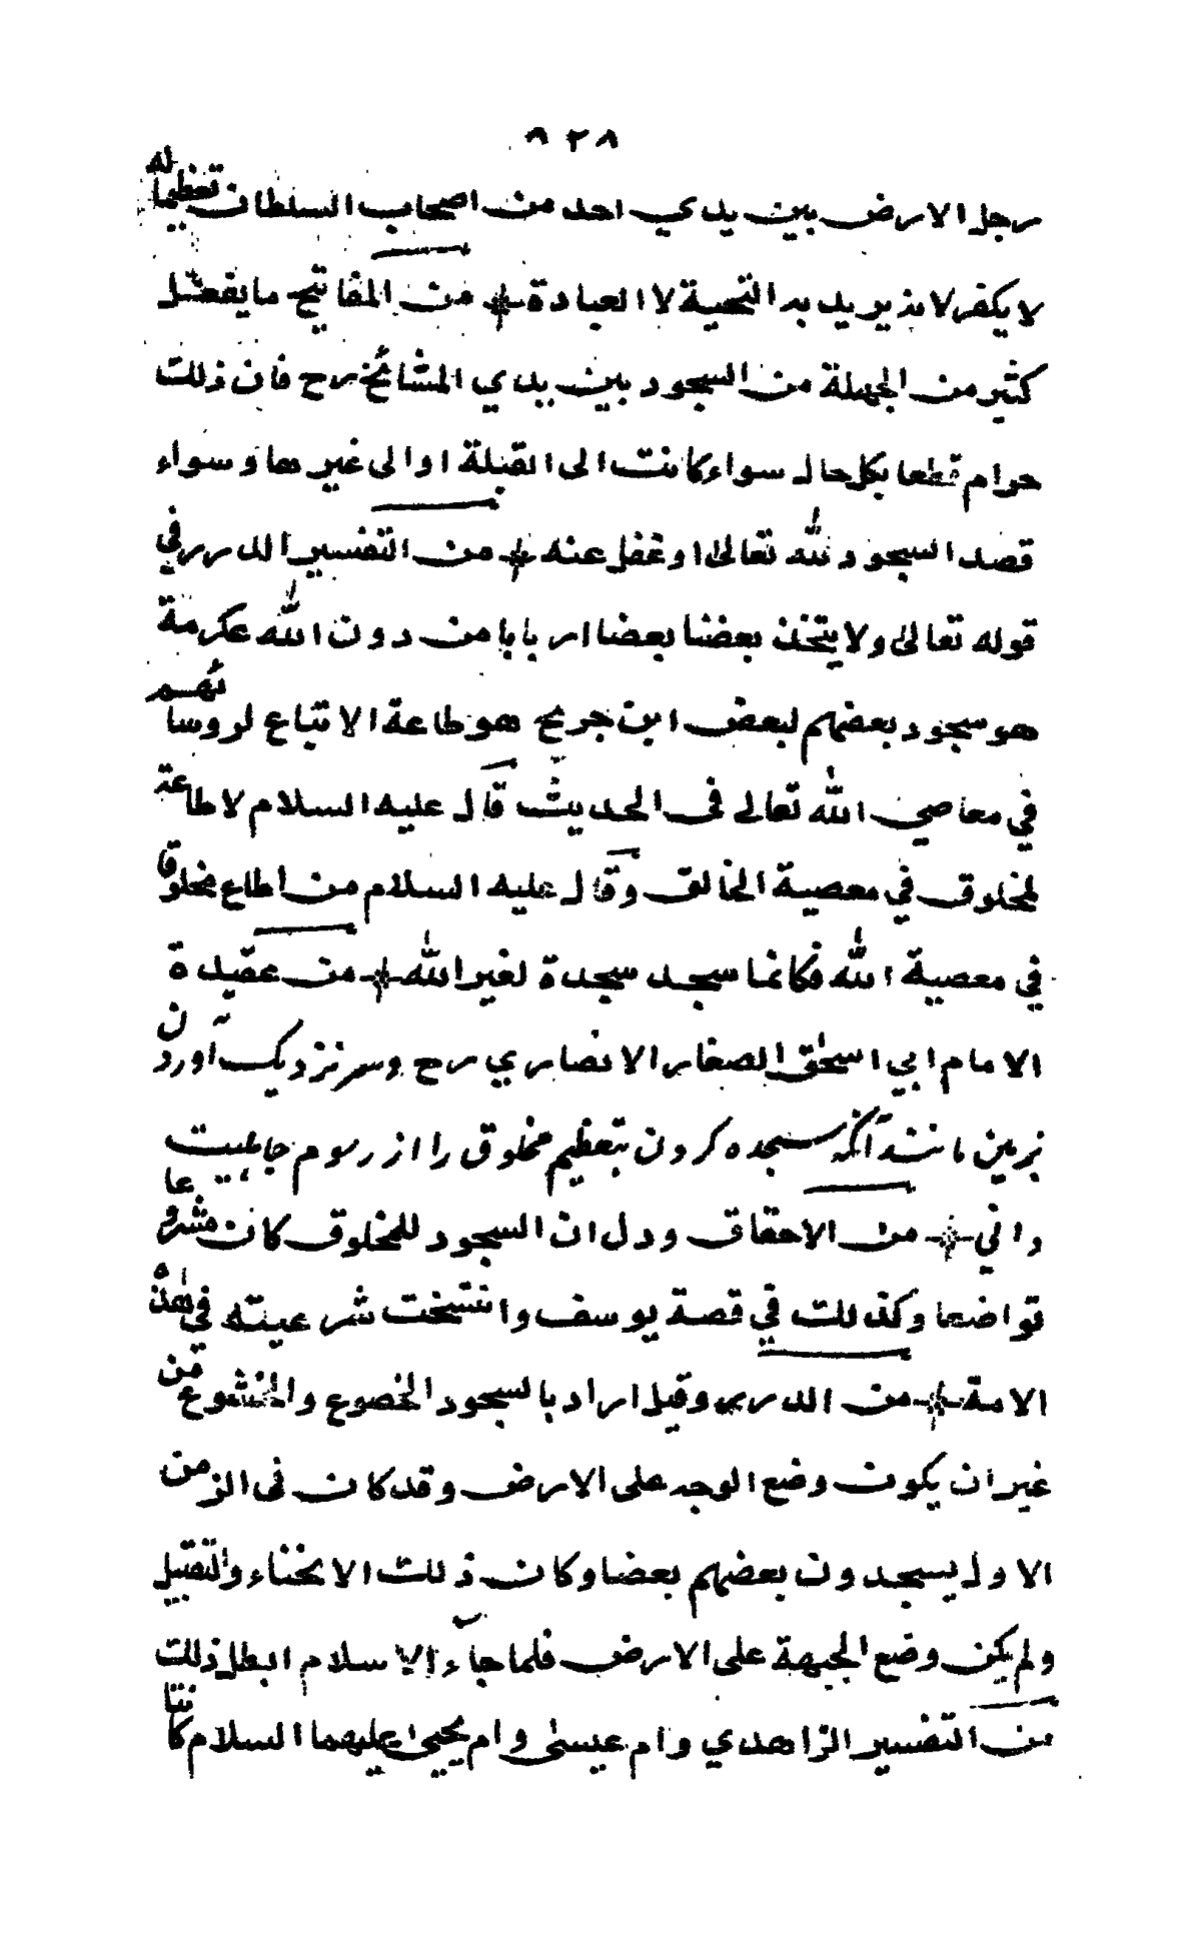 ٨٢٨
رجل الارض بين يدي احد من اصحاب السلطان تعظيما له
لا يكفر لانه يريد به التحية لا العبادة من المفاتيح ما يفعل
كثير من الجهلة من السجود بين يدي المشائخ رح فان ذلك
حرام قطعا بكل حال سواء كانت الى القبلة او الى غيرها وسواء
قصد السجود لله تعالى او غفل عنه من التفسير الدرر في
قوله تعالى ولا يتخذ بعضنا بعضا اربابا من دون الله عكرمة
هو سجود بعضهم لبعض ابن جريج هو طاعة الاتباع لروسائهم
في معاصي الله تعالى فى الحديث قال عليه السلام لا طاعة
لمخلوق في معصية الخالق وقال عليه السلام من اطاع مخلوقا
في معصية الله فكانما سجد سجدة لغير الله من عقيدة
الامام ابي اسحٰق الصفار الانصاري رح وسر نزديك آوردن
بزمين مانند آنكه سجده كردن بتعظيم مخلوق را از رسوم جاهليت
داني من الاحقاق ودل ان السجود للمخلوق كان مشروعا
تواضعا وكذلك في قصة يوسف وانتسخت شرعيته في هٰذه
الامة من الدرر وقيل اراد بالسجود الخضوع والخشوع من
غير ان يكون وضع الوجه على الارض وقد كان فى الزمن
الاول يسجدون بعضهم بعضا وكان ذلك الانحناء والتقبيل
ولم يكن وضع الجبهة على الارض فلما جاء الاسلام ابطل ذلك
من التفسير الزاهدي وام عيسى وام يحيى عليهما السلام كانتا